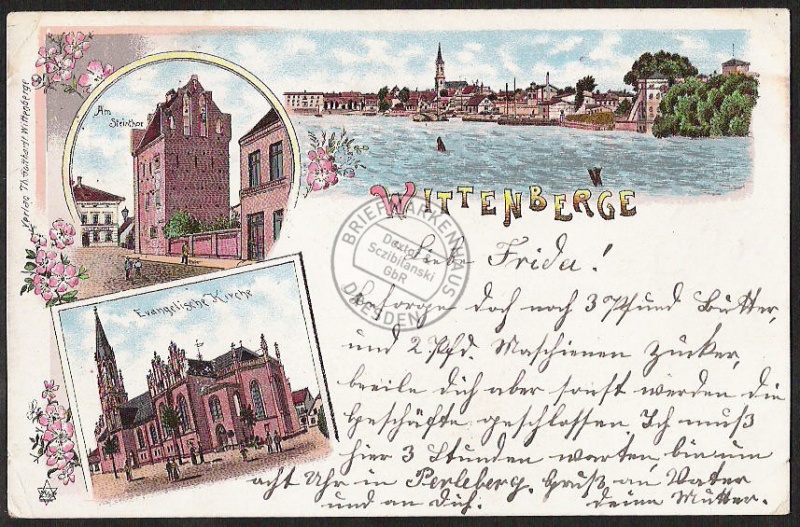 Verlag
Wittenberge
Am
Steinthor
Evangelische Kirche
WITTENBERGE
BRIEFMARKENHAUS
Dexte
Sczibilanski
GbR
DRESDEN
Liebe Frida!
Besorge doch noch 3 Pfund Butter,
und 2 Pfd. Maschienen Zucker,
breile dich aber sonst werden die
Geschäfte geschlossen Ich muß
hier 3 Stunden warten, bin um
acht Uhr in Perleberg. Gruß an Vater
und an Dich. deine Mutter.